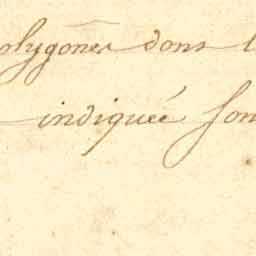 olygônes dont l
indiquée son